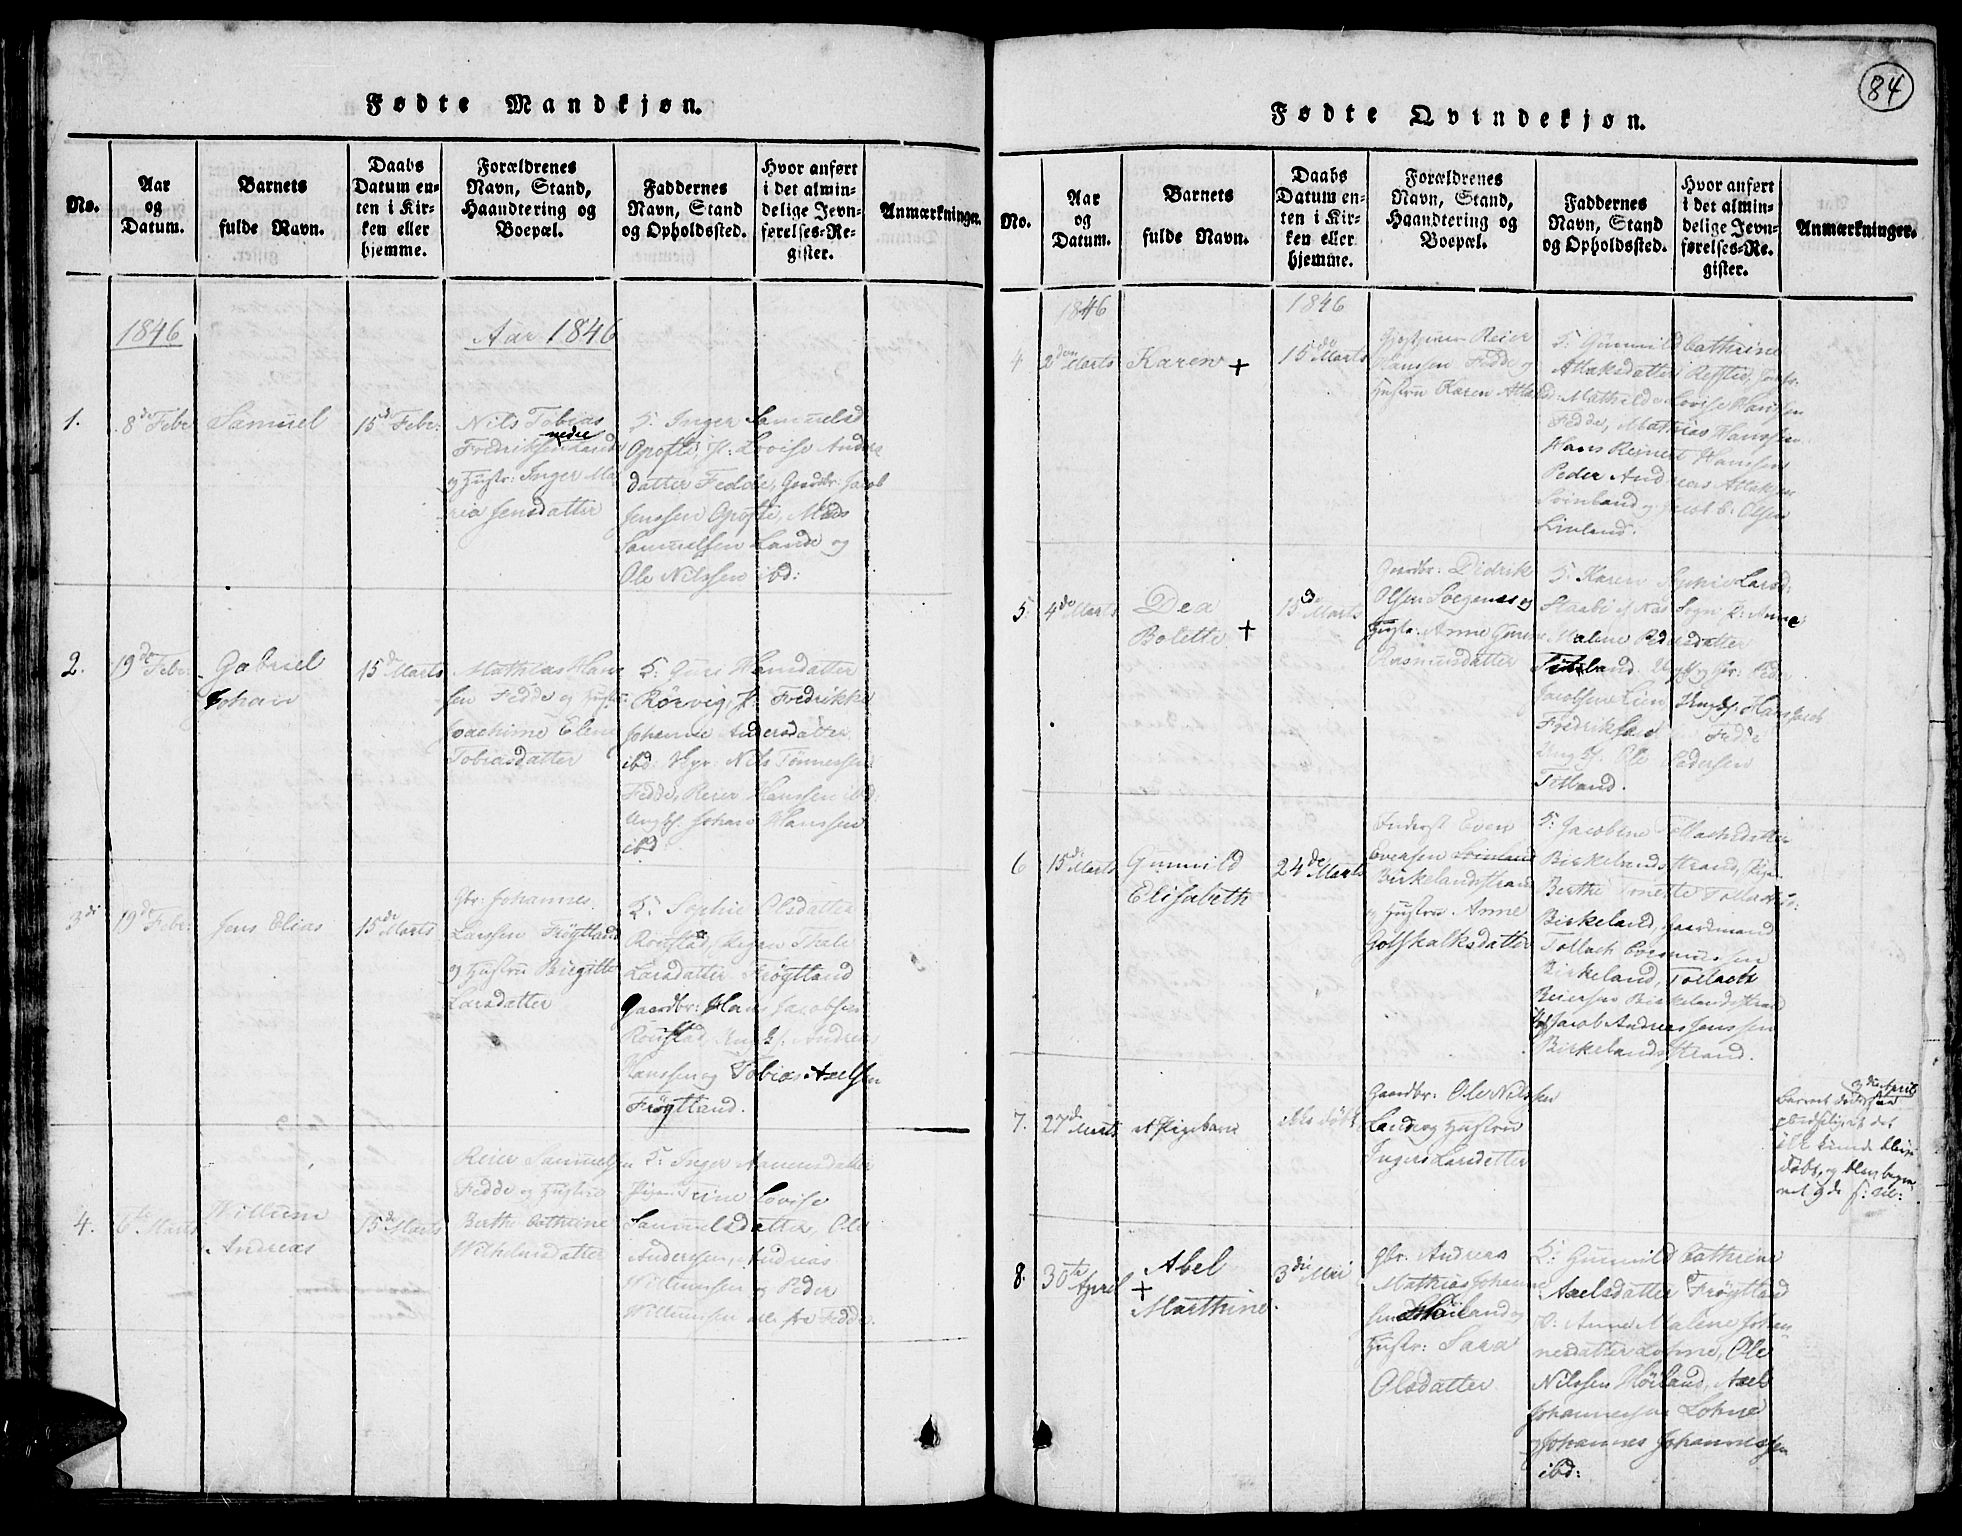 84
Fødte Mandkjøn.
No.
Aar
og
Datum.
Barnets
fulde Navn.
Daabs
Datum en-
ten i Kir-
ken eller
hjemme.
Forældrenes
Navn, Stand,
Haandtering og
Boepæl.
Faddernes
Navn, Stand
og Opholdssted.
Hvor anført
i det almin-
delige Jevn-
førelses-Re-
gister.
Anmærkninger.
1846
Aar 1846
1.
8de Febr
Samuel
15de Febr:
Nils Tobias
nedre
Fredriksen Lande
og Hustr: Inger Ma
ria Jensdatter
F. Inger Samuelsd
Opofte, P: Lovise Andre
datter Fedde, Gaardbr: Jacob
Jenssen Opofte, Mads
Samuelsen Lande og
Ole Nilssen ibd:
2.
19de Febr:
Gabriel
Johan
15de Marts
Mathias Han
sen Fedde og Hustr:
Joachime Elene
Tobiasdatter
F. Guri Hansdatter
Rörvig, P: Fredrikke
Johanne Andersdatter
ibd. Nils Tönnessen
Fedde, Reier Hanssen ibd:
Ungk. Johan Hanssen
ibd
3di
19de Febr:
Jens Elias
15de Marts
Gbr: Johannes
Larssen Frögtland
og Hustru Birgitte
Larsdatter
F. Sophie Olsdatter
Röustad, Pigen Thale
Larsdatter Frögtland
Gaardbr: Hans Jacobsen
Röustad, Ungk. Andreas
Hanssen og Tobias Axelsen
Frögtland.
4.
6te Marts
Willum
Andreas
15de Marts
Reier Samuelsen
Fedde og Hustru
Berthe Cathrine
Wilhelmsdatter
F. Inger Aanensdatter
Pigen Trine Lovise
Samuelsdatter, Ole
Anderssen, Andreas
Willumsen og Peder
Willumsen alle fra Fedde.
Fødte Qvindekjøn.
No.
Aar
og
Datum.
Barnets
fulde Navn.
Daabs
Datum en-
ten i Kir-
ken eller
hjemme.
Forældrenes
Navn, Stand,
Haandtering og
Boepæl.
Faddernes
Navn, Stand
og Opholdssted.
Hvor anført
i det almin-
delige Jevn-
førelses-Re-
gister.
Anmærkninger.
1846
1846
4
2den Marts
Karen +
15de Marts
Reier
Hanssen Fedde og
Hustru Karen Attaksd:
F. Gunnild Cathrine
Attaksdatter
Mathilde Lovise Hansen
Fedde, Mathias Hanssen
Hans Reinert Hanssen
Peder Andreas Attaksen
Svinland og Jacob B. Olsen
Sinland.
5.
4de Marts
Dea
Bolette +
15de Marts
Gaardbr: Didrik
Olsen Loegenes og
Hustr: Anne Gurine
Rasmusdatter
F. Karen Sophie Larsd:
Staabi i Næs Sogn P: Anne
Malene Pedersdatter
Titland. Gbr: Peder
Jacobsen Lien Ungk. Hans Jacob
Fredriksen Fedde
Ungk. Ole Pedersen
Titland.
6
15de Marts
Gunnild
Elisabeth
24de Marts
Inderst Even
Evensen
Birkelandsstrand
og Hustru Anne
Gotskalksdatter
F. Jacobine Tollachsdatter
Birkelandsstrand, Pigen
Berthe Tollachs:
Birkeland, Gaardmand
Tollach
Birkeland, Tollach
Reiersen Birkelandsstrand
og Jacob Andreas Jenssen
Birkelandsstrand.
7.
27de Marts
et Pigebarn
ikke döbt
Gaardbr: Ole Nilssen
Lande og Hustru
Inger Larsdatter
3die April
Barnet döde saa
pludselig, at det
ikke kunde blive
döbt, og blev begra-
vet
8.
30te April
Abel
+
Marthine
3die Mai
Gbr: Andreas
Mathias Johanne
sen Höiland og
Hustr: Sara
Olsdatter
F: Gunnild Cathrine
Axelsdatter Frögtland
P. Anne Malene Johan
nesdatter Lohne, Ole
Nilssen Höiland, Axel
Johannessen Lohne
og Johannes Johannessen
ibd: